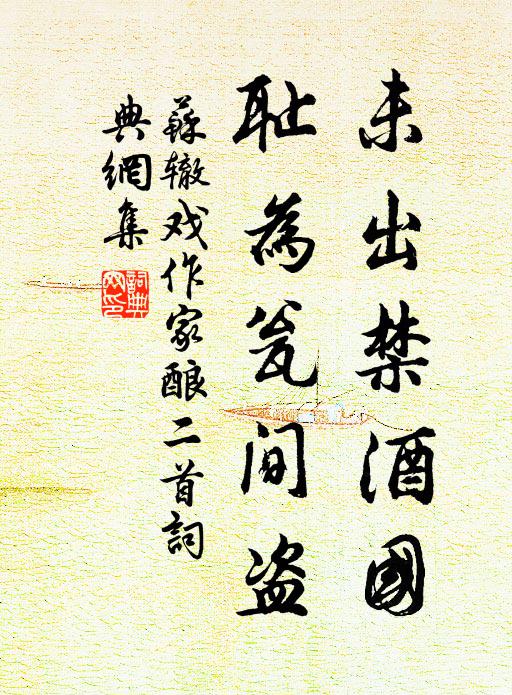 未出禁酒國
耻為瓮间盗
蘇辙戏作家酿二首詞
典網集
詞典网印